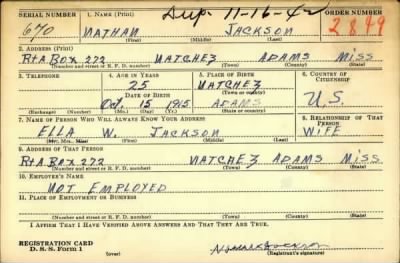 Dup. 11-16-42
SERIAL NUMBER 1. NAME (Print) ORDER NUMBER
670 NATHAN JACKSON 2899
(First) (Middle) (Last)
2. ADDRESS (Print)
Rt A Box 272 NATCHEZ ADAMS MISS
(Number and street or R. F. D. number) (Town) (County) (State)
3. TELEPHONE 4. AGE IN YEARS 5. PLACE OF BIRTH 6. COUNTRY OF CITIZENSHIP
25 NATCHEZ
DATE OF BIRTH (Town or county)
Oct. 15 1915 ADAMS U.S.
(Exchange) (Number) (Mo.) (Day) (Yr.) (State or country)
7. NAME OF PERSON WHO WILL ALWAYS KNOW YOUR ADDRESS 8. RELATIONSHIP OF THAT PERSON
ELLA W. JACKSON WIFE
(Mr., Mrs., Miss) (First) (Middle) (Last)
9. ADDRESS OF THAT PERSON
Rt A Box 272 NATCHEZ ADAMS MISS
(Number and street or R. F. D. number) (Town) (County) (State)
10. EMPLOYER'S NAME
NOT EMPLOYED
11. PLACE OF EMPLOYMENT OR BUSINESS
(Number and street or R. F. D. number) (Town) (County) (State)
I AFFIRM THAT I HAVE VERIFIED ABOVE ANSWERS AND THAT THEY ARE TRUE.
REGISTRATION CARD
D. S. S. Form 1 (over) (Registrant's signature)